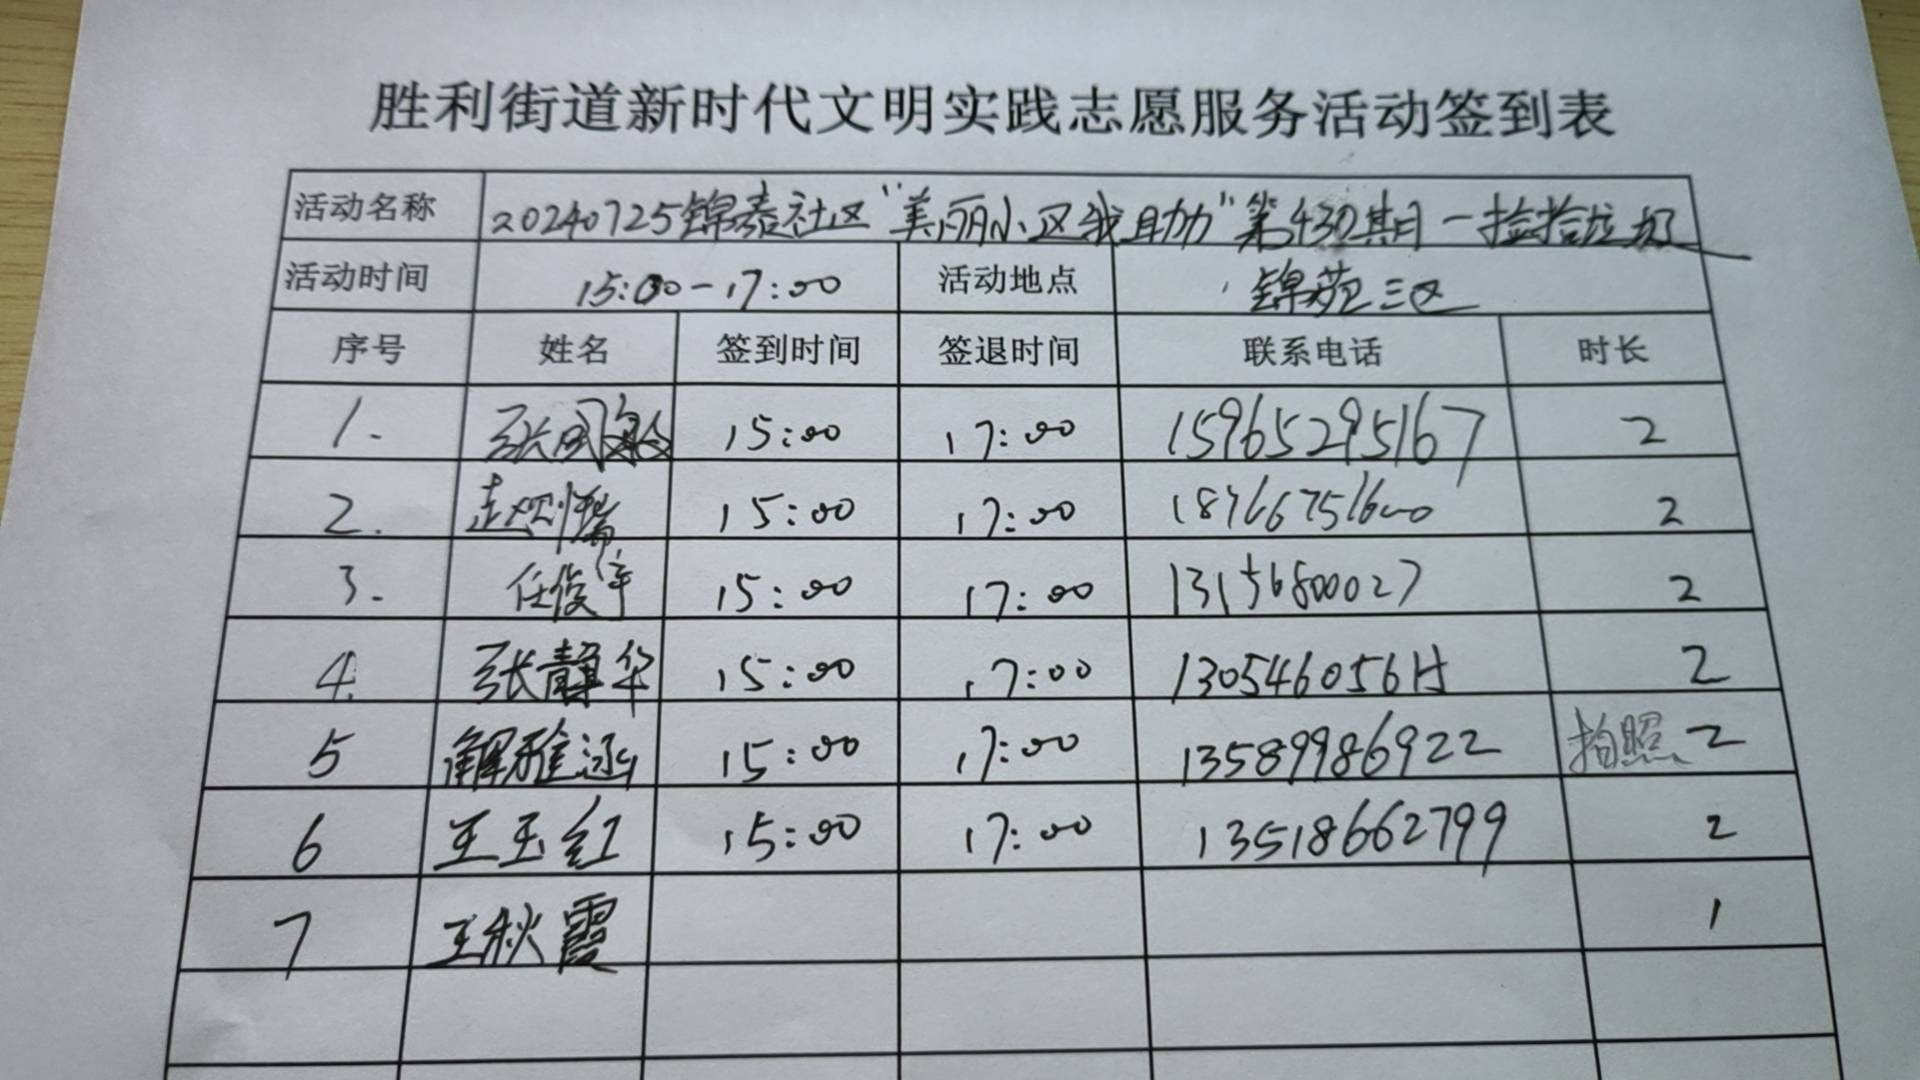 胜利街道新时代文明实践志愿服务活动签到表
活动名称 20240725锦泰社区“美丽小区我自助”第430期—捡拾垃圾
活动时间 15:00-17:00 活动地点 锦苑三区
序号 姓名 签到时间 签退时间 联系电话 时长
1. 张凤敏 15:00 17:00 15965295167 2
2. 赵 15:00 17:00 2
3. 任俊宇 15:00 17:00 13156800027 2
4. 张静华 15:00 17:00 2
5 解雅涵 15:00 17:00 13589986922 拍照 2
6 王玉红 15:00 17:00 13518662799 2
7 王秋霞 1